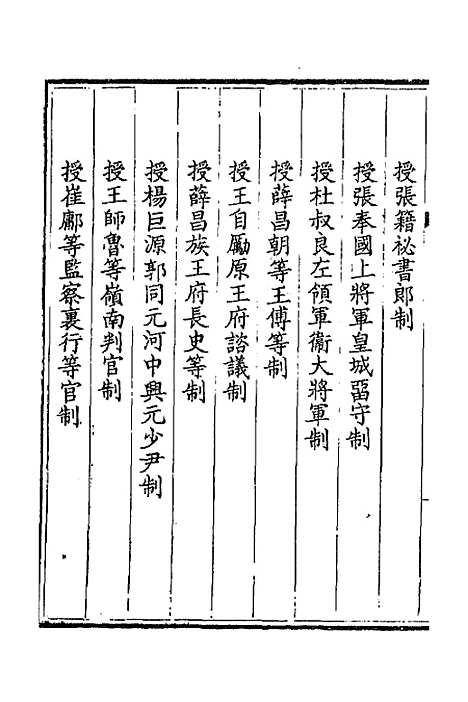 授張籍祕書郎制
授張奉國上將軍皇城畱守制
授杜叔良左領軍衞大將軍制
授薛昌朝等王傅等制
授王自勵原王府諮議制
授薛昌族王府長史等制
授楊巨源郭同元河中興元少尹制
授王師魯等嶺南判官制
授崔鄘等監察裏行等官制